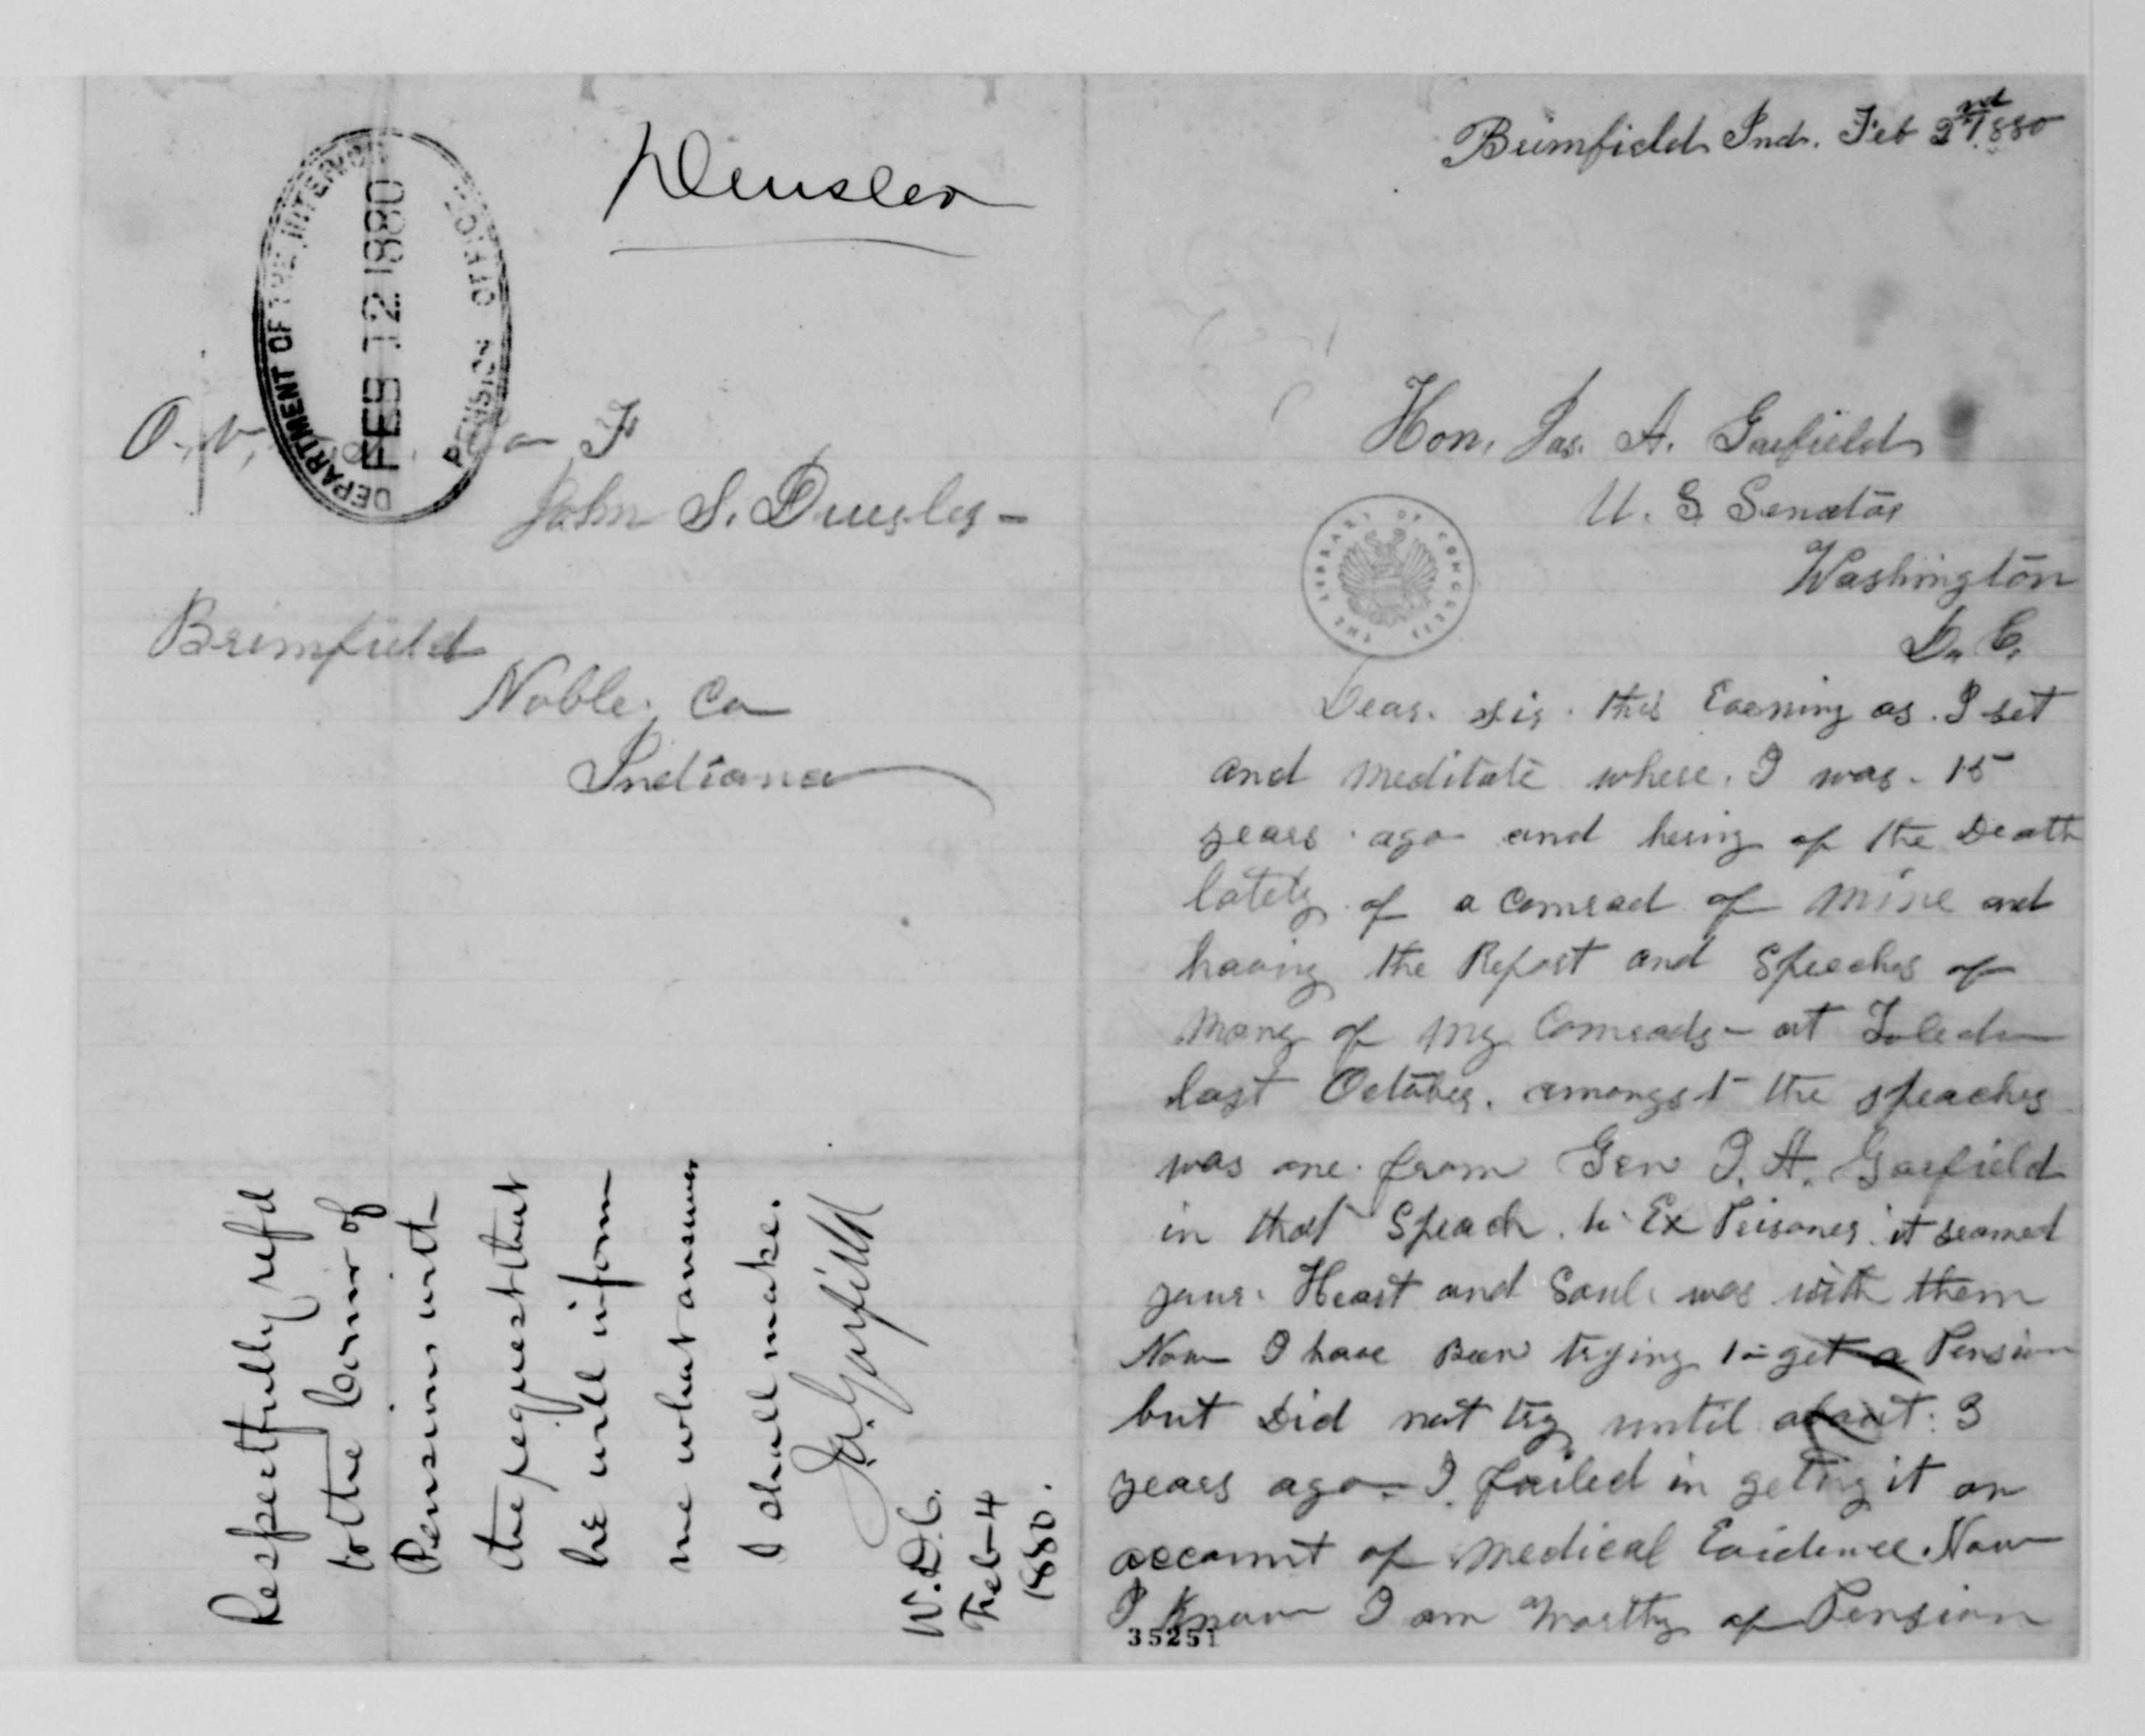 Densler
DEPARTMENT OF THE INTERIOR
FEB 12 1880
PENSION OFFICE
John S. Densler
Brimfield
Noble. Co
Indiana
Respectfully refd
to the Comr of
Pensions with
the request that
he will inform
me what answer
I shall make.
J.A. Garfield
W.D.C.
Feb 4
1880.
Brimfield Ind. Feb 2nd 1880
Hon. Jas. A. Garfield
U. S Senator
Washington
D. C.
THE LIBRARY OF CONGRESS
Dear. sir. this Evening as. I set
and meditate where. I was. 15
years ago and hering of the Death
lately of a Comrad of mine and
having the Report and Speeches of
many of my Comrads - at Toledo
last October. amongst the speaches
was one from Gen J. A. Garfield
in that Speach. to Ex Prisoner it seamed
your. Heart and Soul. was with them
Now I have Been trying to get a Pension
but Did not try until about 3
years ago. I failed in geting it on
account of medical Evidence. Now
I Know I am worthy of Pension
35251